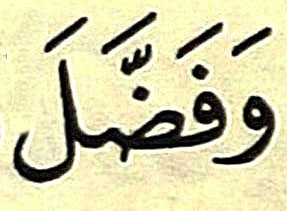 وَفَضَّلَ